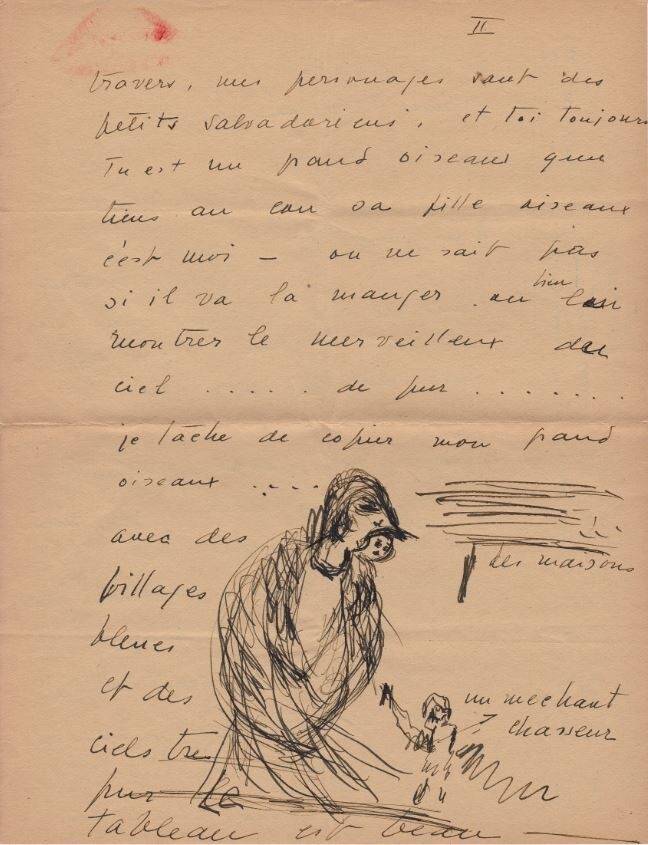 II
travers, mes personages sont des
petits salvadoriens, et toi toujours
Tu est un grand oiseaux que
tiens au cou sa fille oiseaux
c'est moi — on ne sait pas
si il va la manger ou bien
montrer le merveilleux du
ciel ..... de pur ........
je tâche de copier mon grand
oiseaux ....
avec des
villages
bleues
et des
ciels tres
pur le
tableau est beau —
des maisons
un mechant
chasseur